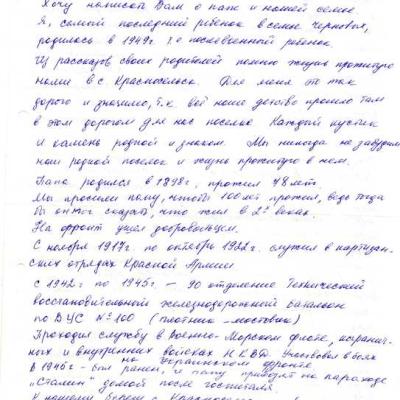 Хочу написать Вам о папе и нашей семье.
Я, самый последний ребенок в семье Черновых,
родилась в 1949г. т.е послевоенный ребенок.
Из рассказов своих родителей помню жизнь прожитую
нами в с. Красносельск. Для меня это так
дорого и значимо, т.к всё наше детство прошло там
в этом дорогом для нас поселке. Каждый кустик
и камень родной и знаком. Мы никогда не забудем
наш родной поселок и жизнь прожитую в нем.
Папа родился в 1898г, прожил 78 лет
Мы просили папу, чтобы 100 лет прожил, ведь тогда
бы он мог сказать, что жил в 2х веках.
На фронт ушел добровольцем.
С ноября 1917г. по октябрь 1922г. служил в партизан-
ских отрядах Красной Армии
с 1942г по 1945г. – 90 отделение Технический
восстановительный железнодорожный батальон
по ВУС №100 (плотник-мостовик)
Проходил службу в Военно-Морском флоте, погранич-
ных и внутренних войсках НКВД. Участвовал в боях
на Украинском фронте
В 1945г – был ранен, и папу привозят на пароходе
"Сталин" домой после госпиталя.
К нашему берегу с Красносельска